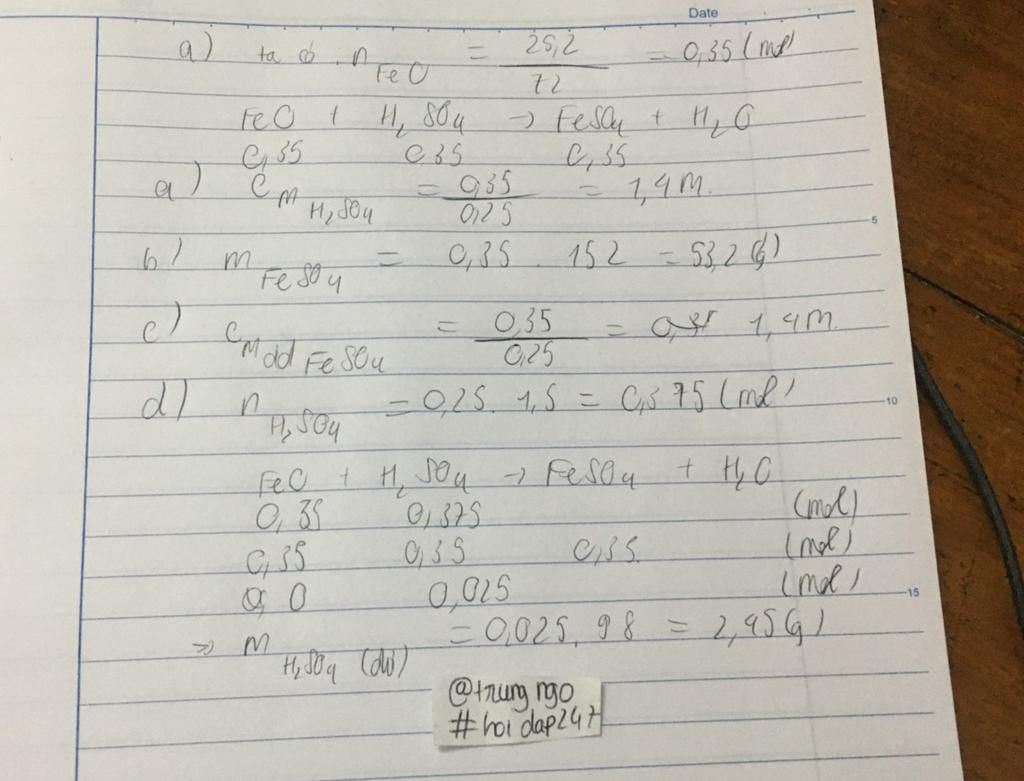 Date
a) ta có. nFeO = 25,2/72 = 0,35 (mol)
FeO + H2SO4 → FeSO4 + H2O
0,35 0,35 0,35
a) CM H2SO4 = 0,35/0,25 = 1,4M.
b) mFeSO4 = 0,35 . 152 = 53,2 (g)
5
c) CM dd FeSO4 = 0,35/0,25 = 1,4M.
d) nH2SO4 = 0,25. 1,5 = 0,375 (mol)
10
FeO + H2SO4 → FeSO4 + H2O
0,35 0,375 (mol)
0,35 0,35 0,35 (mol)
0 0,025 (mol)
15
⇒ mH2SO4 (dư) = 0,025. 98 = 2,45 (g)
@trung ngo
#hoi dap247